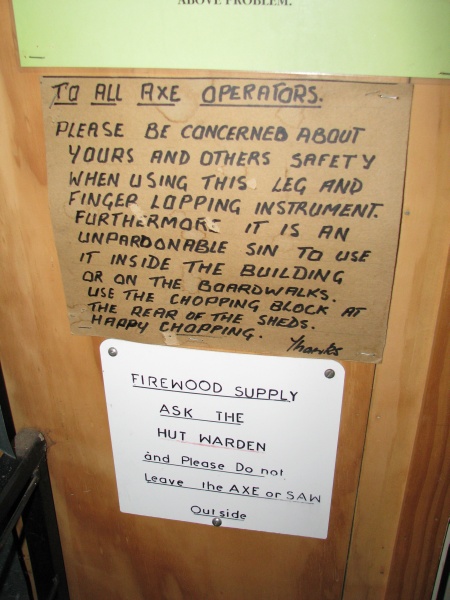 ABOVE PROBLEM.
TO ALL AXE OPERATORS.
PLEASE BE CONCERNED ABOUT
YOURS AND OTHERS SAFETY
WHEN USING THIS LEG AND
FINGER LOPPING INSTRUMENT.
FURTHERMORE IT IS AN
UNPARDONABLE SIN TO USE
IT INSIDE THE BUILDING
OR ON THE BOARDWALKS.
USE THE CHOPPING BLOCK AT
THE REAR OF THE SHEDS.
HAPPY CHOPPING.
Thanks
FIREWOOD SUPPLY
ASK THE
HUT WARDEN
and Please Do not
Leave the AXE or SAW
Outside